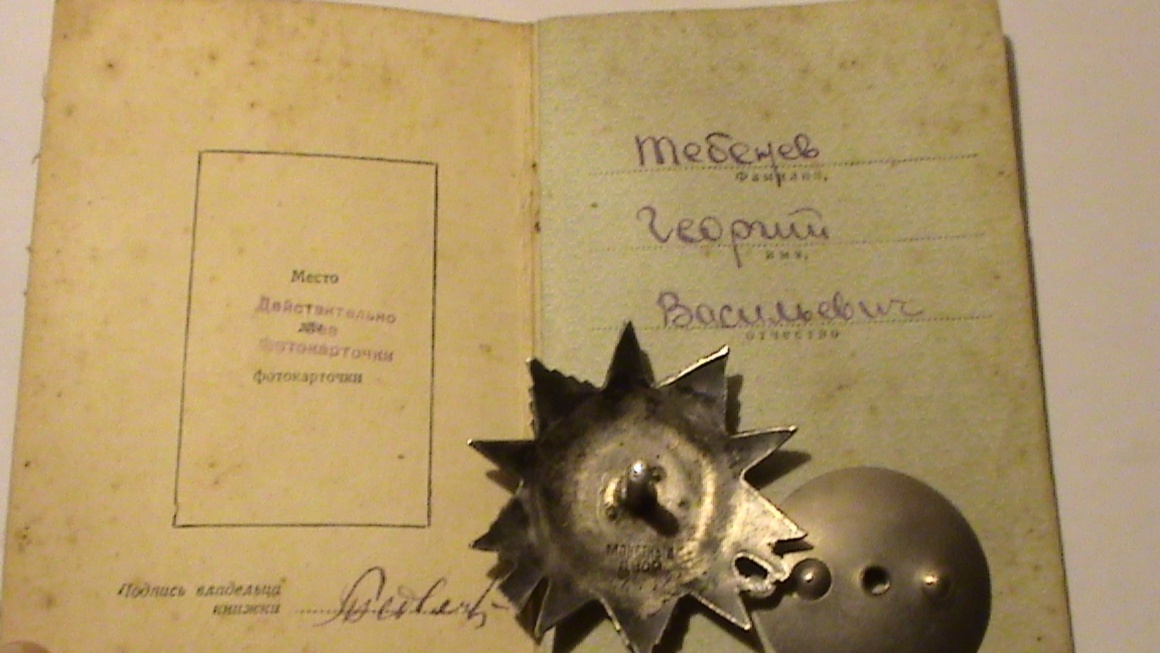 Место
Действительно
без
фотокарточки
фотокарточки
Подпись владельца
книжки
Тебенев
Фамилия,
Георгий
имя,
Васильевич
отчество
МОНЕТНЫЙ
ДВОР